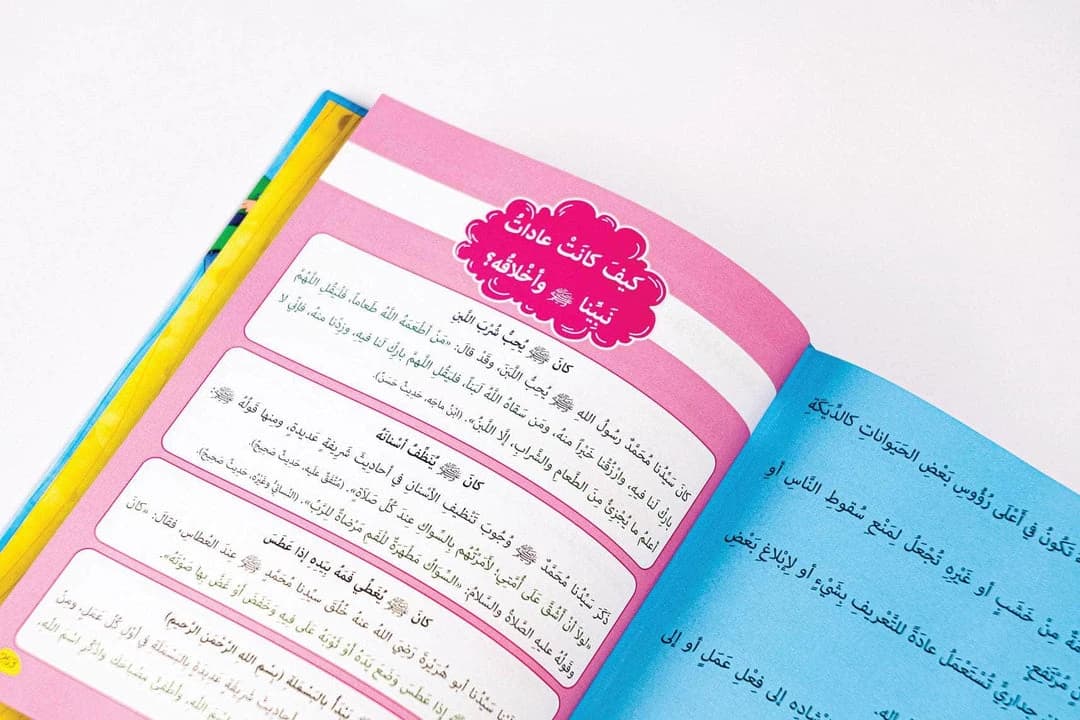 كَيفَ كانَتْ عاداتُ
نَبِيِّنا ﷺ وأَخْلاقُه؟
كانَ ﷺ يُحِبُّ شُرْبَ اللَّبَنِ
كانَ سَيِّدُنا مُحَمَّدٌ رَسُولُ اللهِ ﷺ يُحِبُّ اللَّبَنَ، وقَدْ قالَ: «مَنْ أَطْعَمَهُ اللهُ طَعاماً، فَلْيَقُلِ اللَّهُمَّ
بارِكْ لَنا فيهِ، وارْزُقْنا خَيْراً مِنهُ، ومَن سَقاهُ اللهُ لَبَناً، فَليَقُلِ اللَّهُمَّ بارِكْ لَنا فيهِ، وزِدْنا مِنهُ، فَإِنِّي لا
أَعلَمُ ما يُجْزِئُ مِنَ الطَّعامِ والشَّرابِ، إِلَّا اللَّبَنُ». (ابْنُ ماجَه، حَديثٌ حَسَنٌ).
كانَ ﷺ يُنَظِّفُ أَسْنانَهُ
ذَكَرَ سَيِّدُنا مُحَمَّدٌ ﷺ وُجُوبَ تَنْظيفِ الأَسْنانِ في أَحاديثَ شَريفَةٍ عَديدَةٍ، ومِنها قَولُهُ ﷺ:
«لَولا أَنْ أَشُقَّ عَلى أُمَّتِي؛ لَأَمَرْتُهُم بِالسِّواكِ عِندَ كُلِّ صَلاة». (مُتَّفَقٌ عَليهِ، حَديثٌ صَحيحٌ).
وقَولُهُ عَليهِ الصَّلاةُ والسَّلامُ: «السِّوَاكُ مَطْهَرَةٌ لِلْفَمِ مَرْضاةٌ لِلرَّبِّ». (النَّسائِيُّ وغَيْرُهُ، حَديثٌ صَحيحٌ).
كانَ ﷺ يُغَطِّي فَمَهُ بِيَدِهِ إِذا عَطَسَ
سَيِّدُنا أَبو هُرَيْرَةَ رَضِيَ اللهُ عَنهُ خُلُقَ سَيِّدِنا مُحَمَّدٍ ﷺ عِندَ العُطاسِ، فَقالَ: «كانَ
إِذا عَطَسَ وَضَعَ يَدَهُ أَو ثَوْبَهُ عَلى فيهِ وَخَفَضَ أَو غَضَّ بِها صَوْتَهُ».
يَبْدَأُ بِالبَسْمَلَةِ (بِسْمِ اللهِ الرَّحْمَنِ الرَّحيمِ)
أَحاديثَ شَريفَةٍ عَديدَةٍ بِالبَسْمَلَةِ في أَوَّلِ كُلِّ عَمَلٍ، ومِنْ
اللهِ، وأَطْفِئْ مِصْباحَكَ واذْكُرِ اسْمَ اللهِ،
تَكُونُ في أَعْلَى رُؤُوسِ بَعْضِ الحَيَواناتِ كالدِّيَكَةِ
مِنْ خَشَبٍ أو غَيْرِهِ تُجْعَلُ لِمَنْعِ سُقوطِ النَّاسِ أو
مُرْتَفِعٍ.
جِدارِيٌّ تُسْتَعْمَلُ عادَةً لِلتَّعْريفِ بِشَيْءٍ أو لِإبْلاغِ بَعْضِ
إلى فِعْلِ عَمَلٍ أو إلى